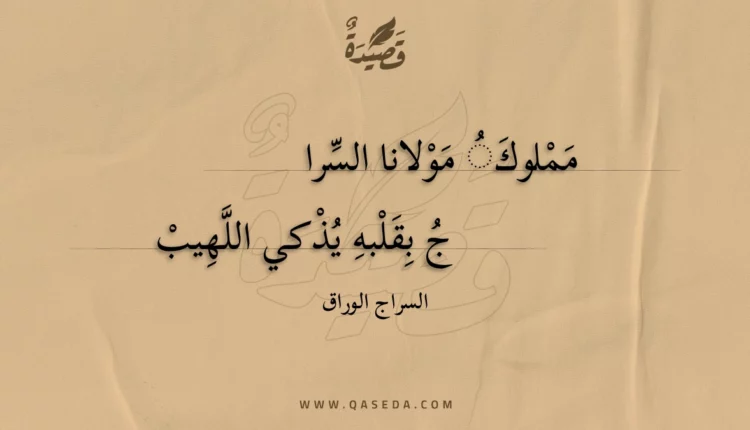 قَصِيْدَةٌ
مَمْلوكَُ مَوْلانا السِّرا
جُ بِقَلْبهِ يُذْكي اللَّهِيبْ
السراج الوراق
WWW.QASEDA.COM